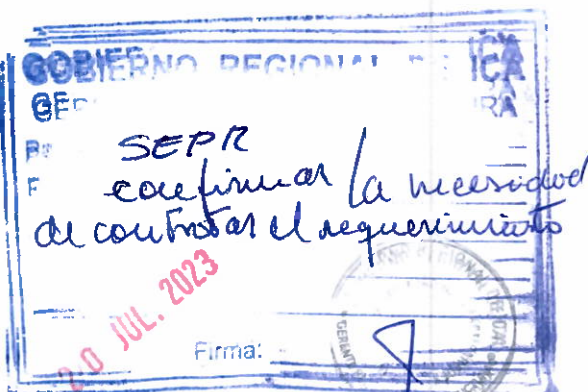 GOBIERNO REGIONAL DE ICA
SEPR
confirmar la necesidad
de contratar el requerimiento
20 JUL. 2023
Firma: